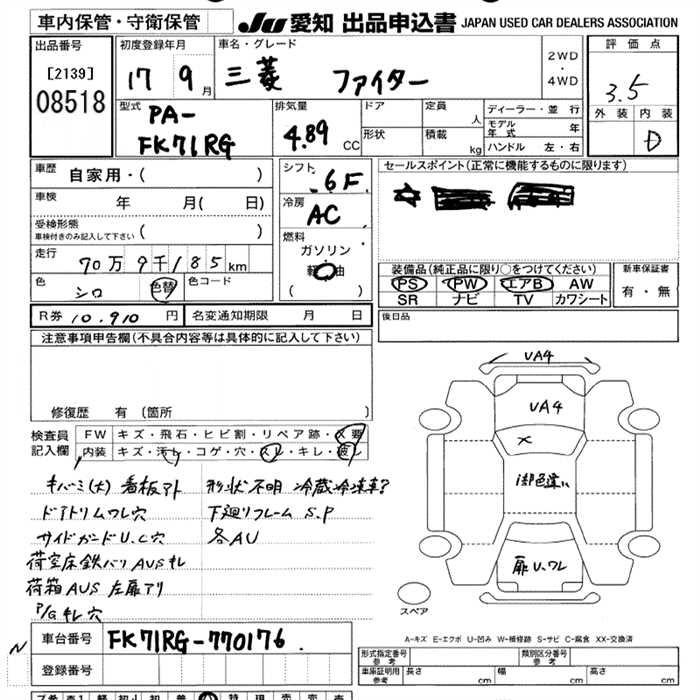 車内保管・守衛保管
JU 愛知 出品申込書 JAPAN USED CAR DEALERS ASSOCIATION
出品番号
[2139]
08518
初度登録年月
17 9月
車名・グレード
三菱 ファイター
2WD
・
4WD
評価点
3.5
外装 内装
D
型式
PA-
FK71RG
排気量
4.89 CC
ドア
形状
定員 人
積載 kg
ディーラー・並行
モデル年式 年
ハンドル 左・右
車歴 自家用・( )
車検 年 月( 日)
受検形態
車検付きのみ記入して下さい ( )
走行 70万9千185km
色 シロ 色替 色コード
シフト 6F
冷房 AC
燃料
ガソリン
軽油
( )
セールスポイント(正常に機能するものに限ります)
装備品(純正品に限り○をつけてください)
PS PW エアB AW
SR ナビ TV カワシート
新車保証書
有・無
R券 10.910 円 名変通知期限 月 日
後日品
注意事項申告欄(不具合内容等は具体的に記入して下さい)
修復歴 有(箇所 )
検査員
記入欄
FW キズ・飛石・ヒビ割・リペア跡・X要
内装 キズ・汚レ・コゲ・穴・スレ・キレ・破レ
キバミ(大) 看板アト 形状不明 冷蔵冷凍車?
ドアトリムワレ穴 下廻りフレーム S.P
サイドガードU.C穴 各AU
荷室床鉄バリAUSキレ
荷箱AUS 左扉アリ
P/Gキレ穴
VA4
VA4
X
扉U.ワレ
スペア
A-キズ E-エクボ U-凹み W-補修跡 S-サビ C-腐食 XX-交換済
N
車台番号 FK71RG-770176
登録番号
形式指定番号
参考
類別区分番号
参考
車庫証明用
参考
長さ cm 幅 cm 高さ cm